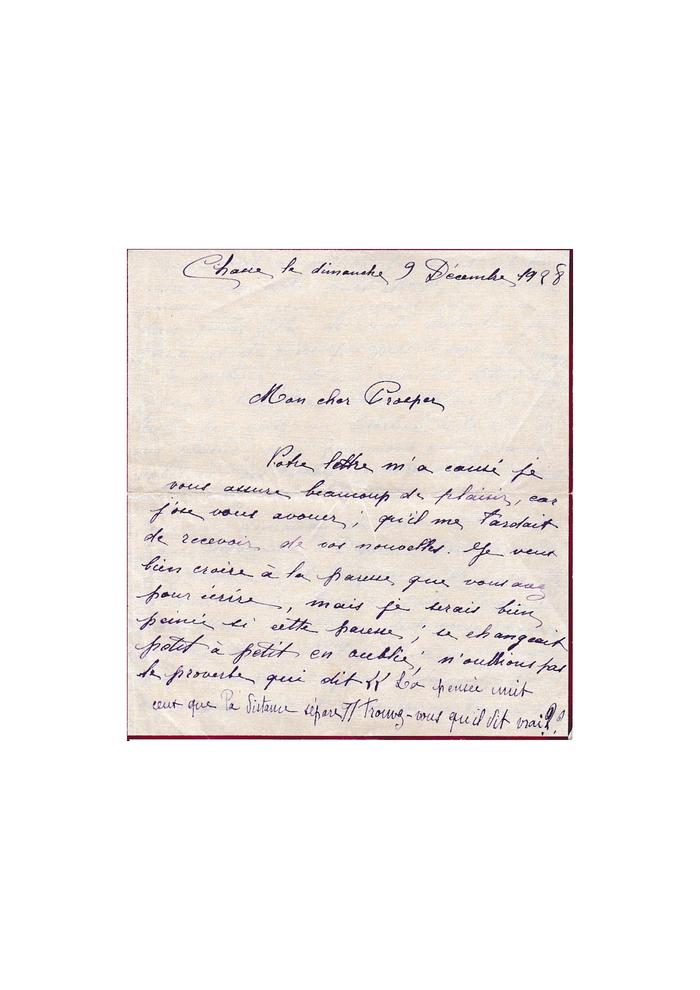 Chasse le dimanche 9 Décembre 1928
Mon cher Prosper
Votre lettre m'a causé je
vous assure beaucoup de plaisir, car
j'ose vous avouer; qu'il me tardait
de recevoir de vos nouvelles. Je veux
bien croire à la paresse que vous avez
pour écrire, mais je serais bien
peinée si cette paresse; se changeait
petit à petit en oublie; n'oublions pas
le proverbe qui dit " La pensée unit
ceux que la distance sépare " Trouvez-vous qu'il dit vrai??